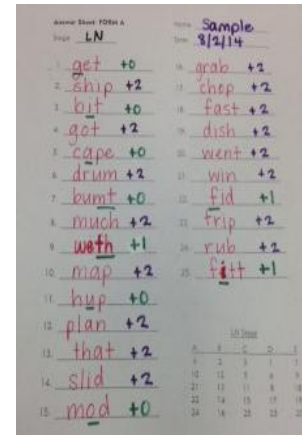 Answer Sheet: FORM A
Name Sample
Stage LN
Date 8/2/14
1. get +0
2. ship +2
3. bit +0
4. got +2
5. cape +0
6. drum +2
7. bumt +0
8. much +2
9. weth +1
10. map +2
11. hup +0
12. plan +2
13. that +2
14. slid +2
15. mod +0
16. grab +2
17. chop +2
18. fast +2
19. dish +2
20. went +2
21. win +2
22. fid +1
23. trip +2
24. rub +2
25. fitt +1
LN Stage